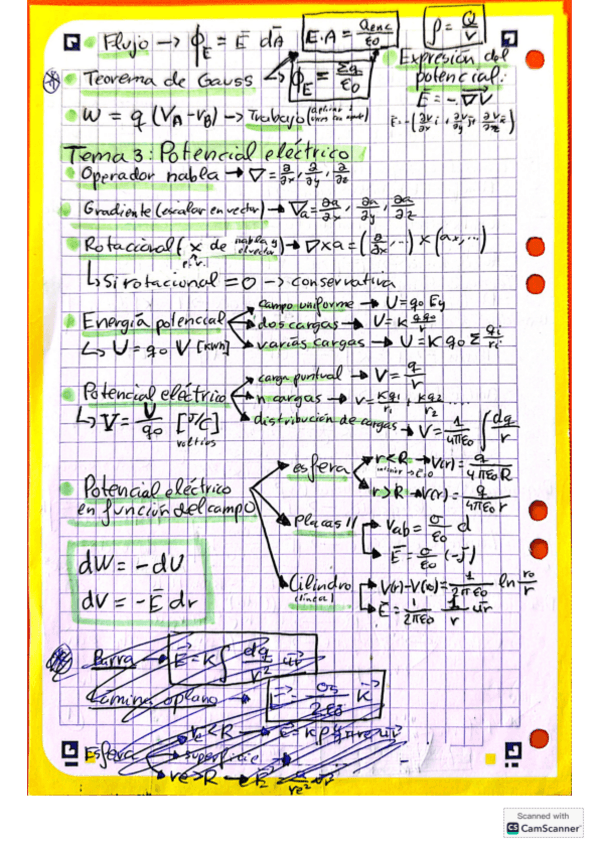 Flujo → ϕE = Ē dĀ
E·A = qenc/ε0
ρ = Q/V
Teorema de Gauss ↳ ϕE = Σq/ε0
Expresión del potencial:
Ē = -∇V
Ē = -(∂V/∂x i, ∂V/∂y j, ∂V/∂z k)
W = q (VA - VB) → Trabajo
Tema 3: Potencial eléctrico
Operador nabla → ∇ = ∂/∂x, ∂/∂y, ∂/∂z
Gradiente (escalar en vector) → ∇a = ∂a/∂x, ∂a/∂y, ∂a/∂z
Rotacional (x de nabla y el vector) → ∇xa = (∂/∂x, ...) x (ax, ...)
↳ Si rotacional = 0 → conservativa
Energía potencial
campo uniforme → U = q0 E y
dos cargas → U = K q q0/r
varias cargas → U = K q0 Σ qi/ri
↳ U = q0 V [kWh]
Potencial eléctrico
carga puntual → V = q/r
n cargas → V = Kq1/r1, Kq2/r2, ...
distribución de cargas → V = 1/4πε0 ∫ dq/r
↳ V = U/q0 [J/C]
voltios
Potencial eléctrico en función del campo
esfera
r<R → V(r) = q/4πε0R
r>R → V(r) = q/4πε0r
Placas //
Vab = σ/ε0 d
Ē = σ/ε0 (-j)
Cilindro
(línea)
V(r) - V(r0) = 1/2πε0 ln r0/r
Ē = 1/2πε0 1/r ur
dW = -dU
dV = -Ē dr
Barra → E = K ∫ dq/r² ur
Lámina o plano → E = σ/2ε0 K
Esfera
re<R
superficie
re>R
Scanned with
CS CamScanner